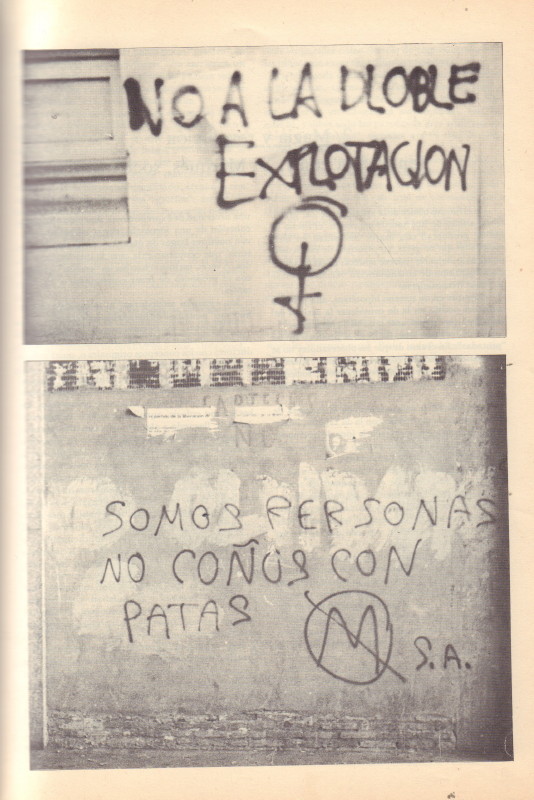 NO A LA DLOBLE
EXPLOTACION
SOMOS PERSONAS
NO COÑOS CON
PATAS
M S.A.